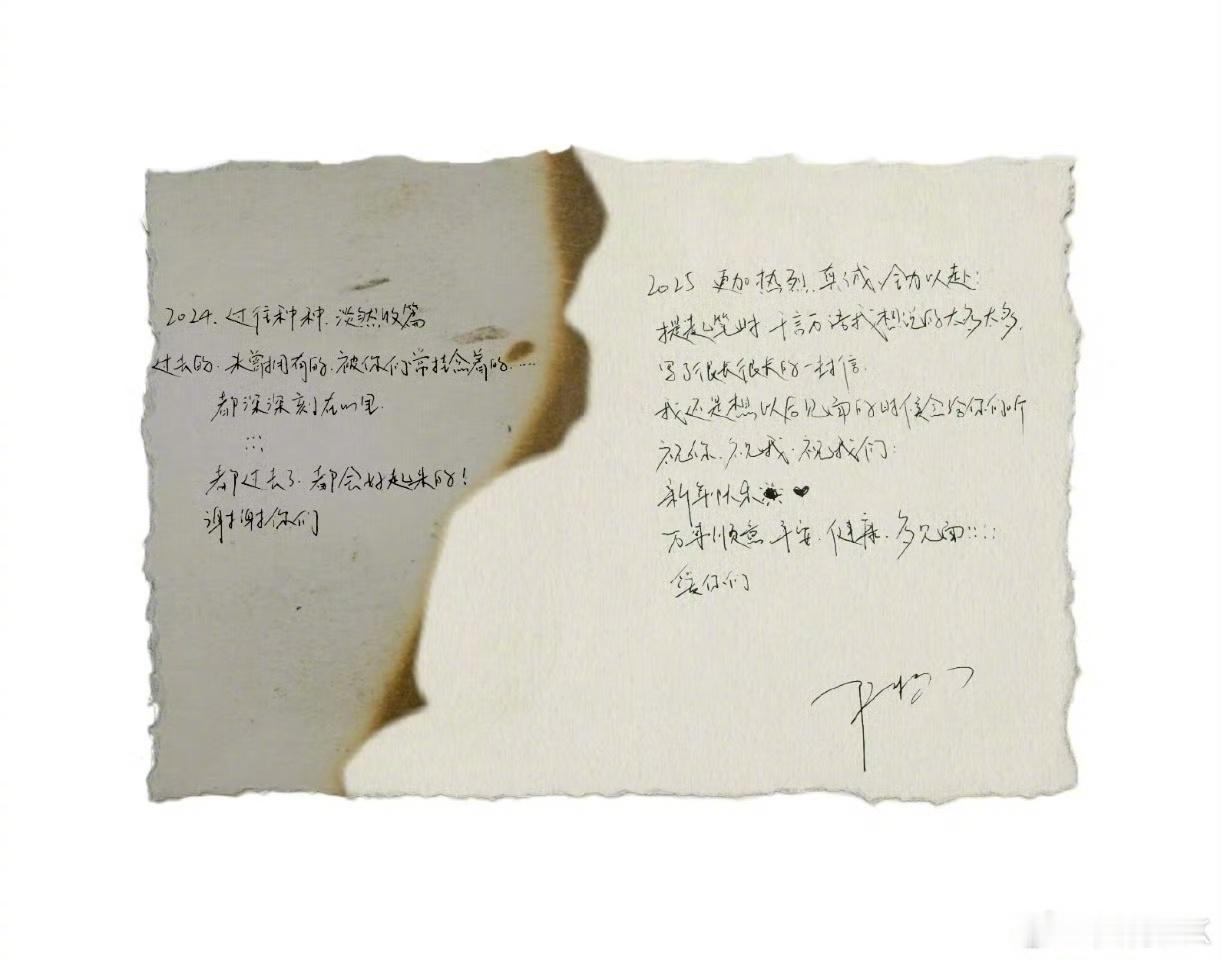 2024. 过往种种. 淡然收篇
过去的. 未曾拥有的. 被你们常挂念着的.....
都深深刻在心里.
:::
都过去了. 都会好起来的!
谢谢你们
2025 更加热烈. 真诚. 全力以赴:
提起笔时 千言万语我想说的太多太多.
写了很长很长的一封信.
我还是想以后见面的时候念给你们听
祝你. 祝我. 祝我们:
新年快乐 ♥
万事顺意 平安. 健康. 多见面::::
给你们